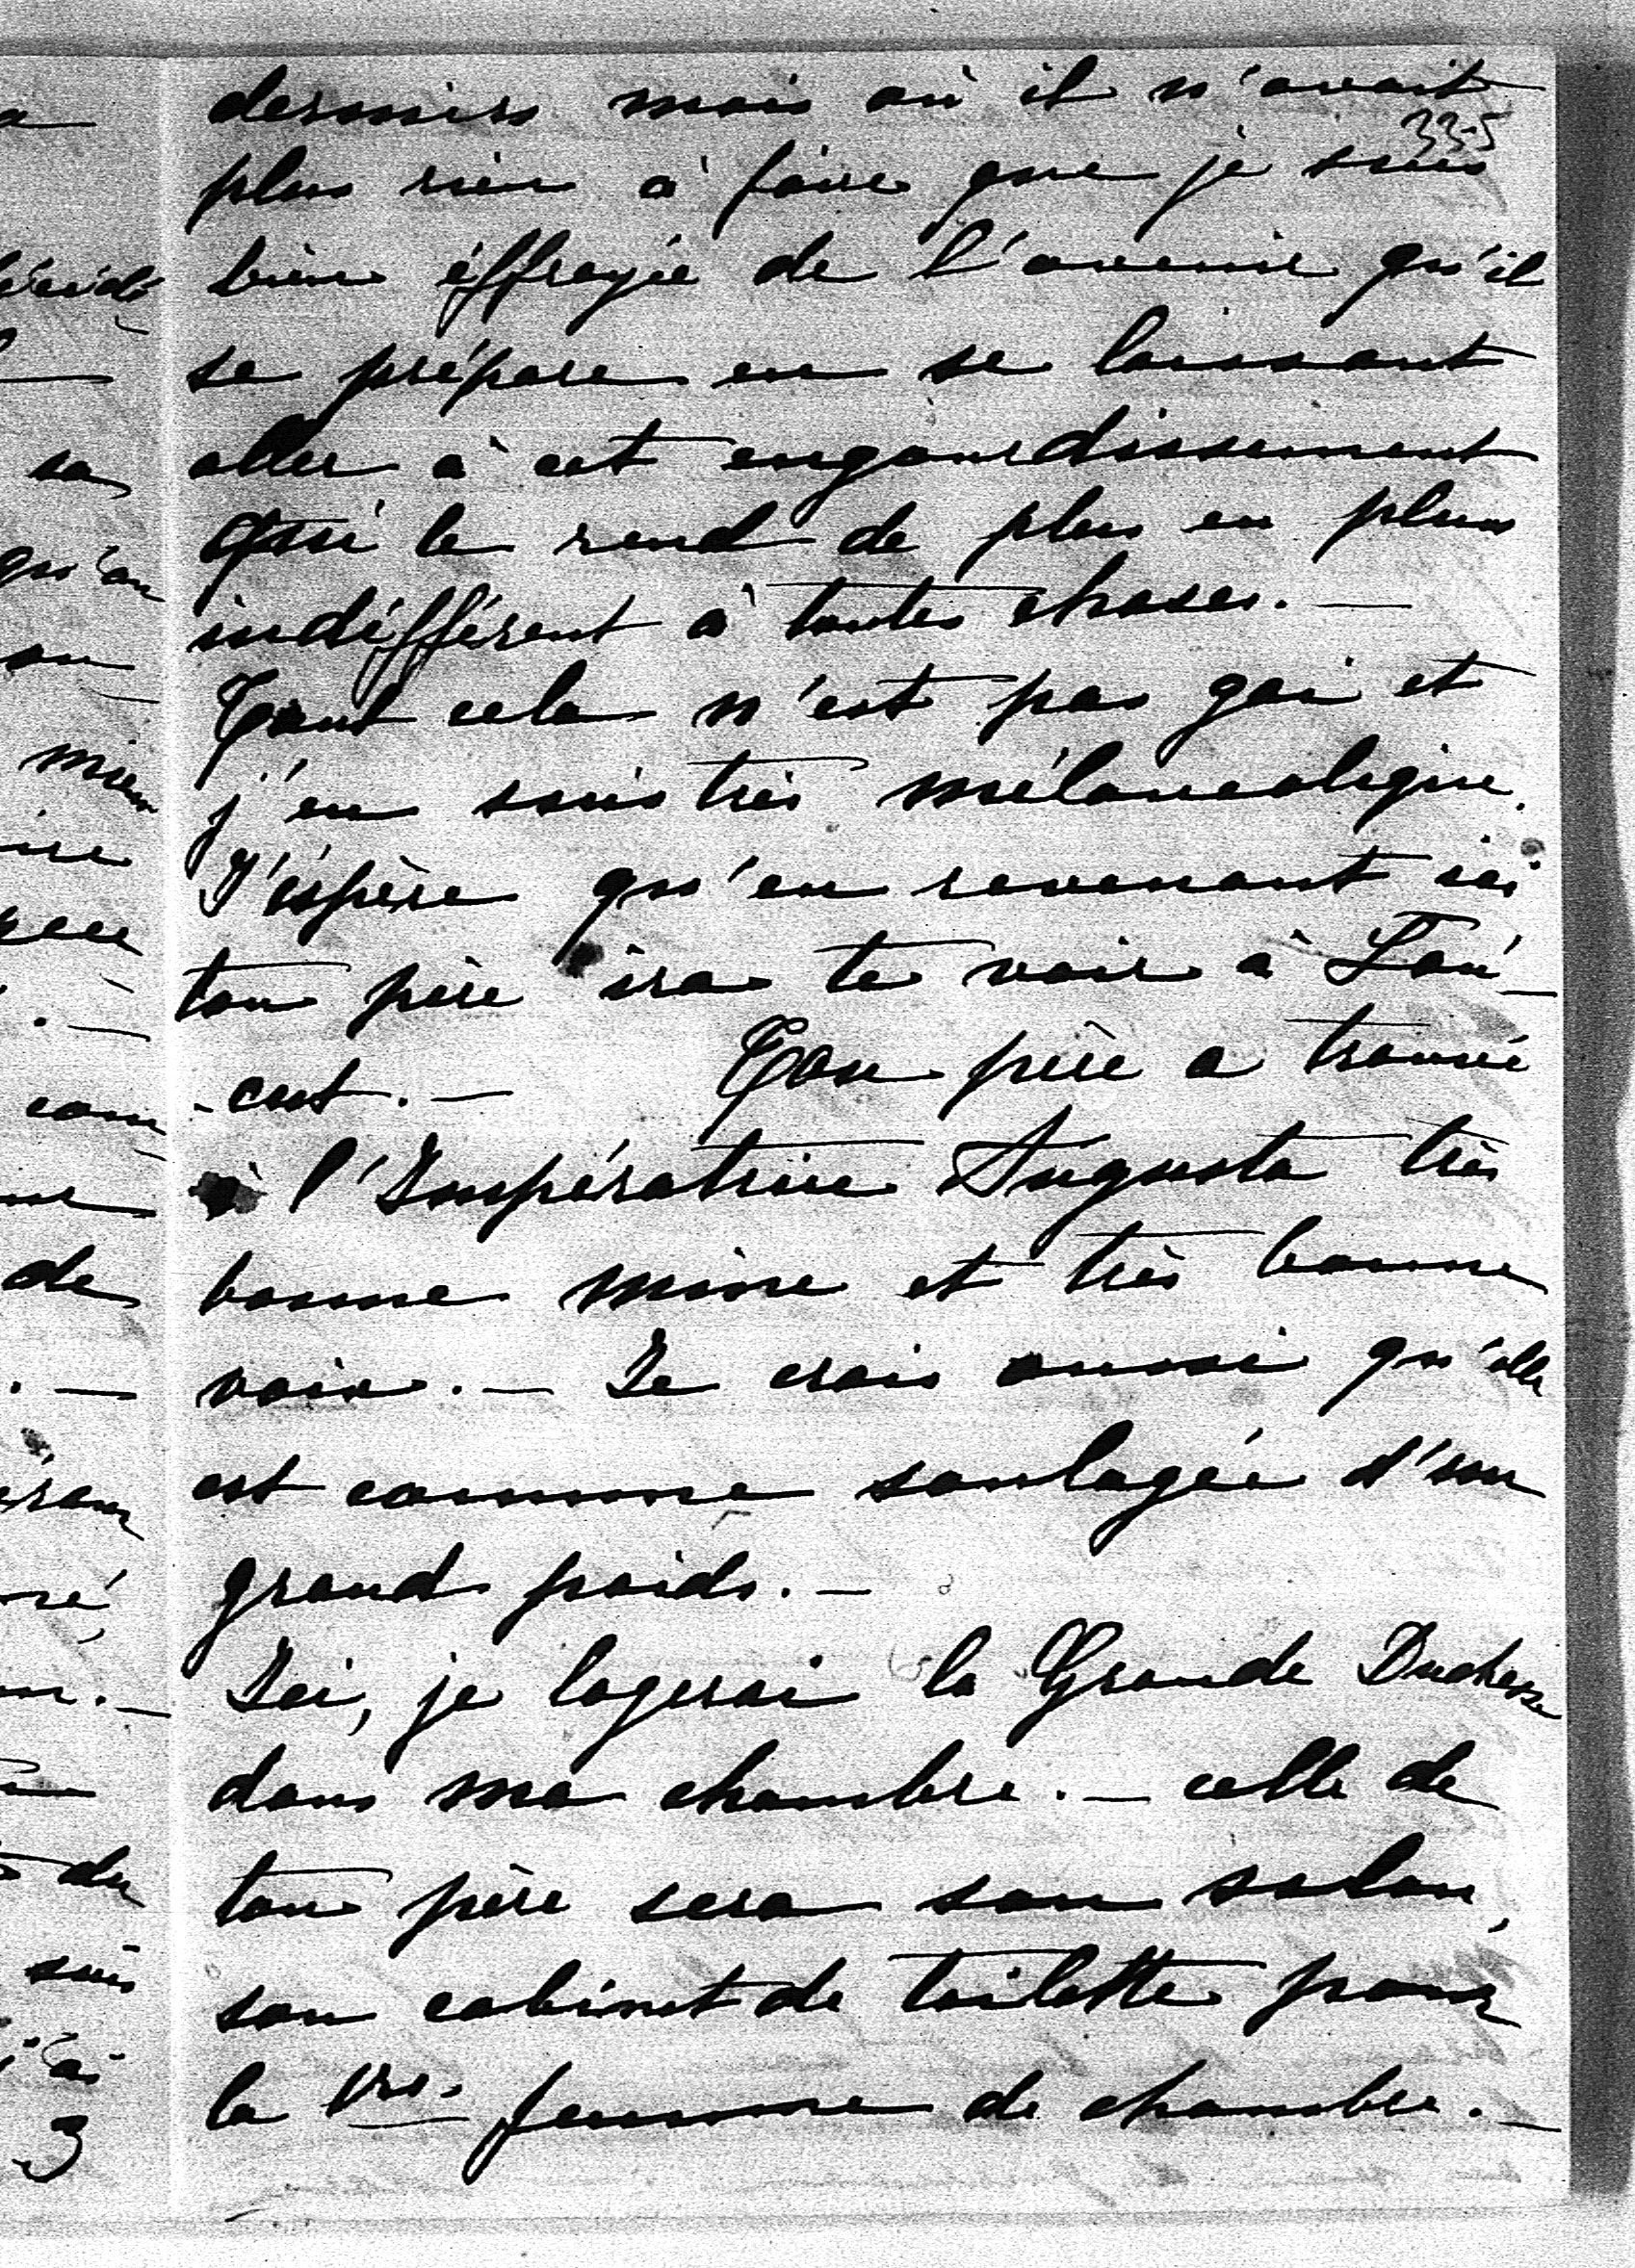 derniers mois où il n'avait
335
plus rien à faire que je suis
bien éffrayée de l'avenir qu'il
se prépare en se laissant
aller à cet engourdissement
qui le rend de plus en plus
indifférent à toutes choses. —
Tout cela n'est pas gai et
j'en suis très mélancolique.
J'éspère qu'en revenant ici
ton père ira te voir à
-cut. — Ton père a trouvé
à l'Impératrice Augusta très
bonne mine et très bonne
voix. — Je crois aussi qu'elle
est comme soulagée d'un
grand poids. —
Ici, je logerai la Grande Duchesse
dans ma chambre. — celle de
ton père sera son salon,
son cabinet de toilette pour
la 1re. femme de chambre. —